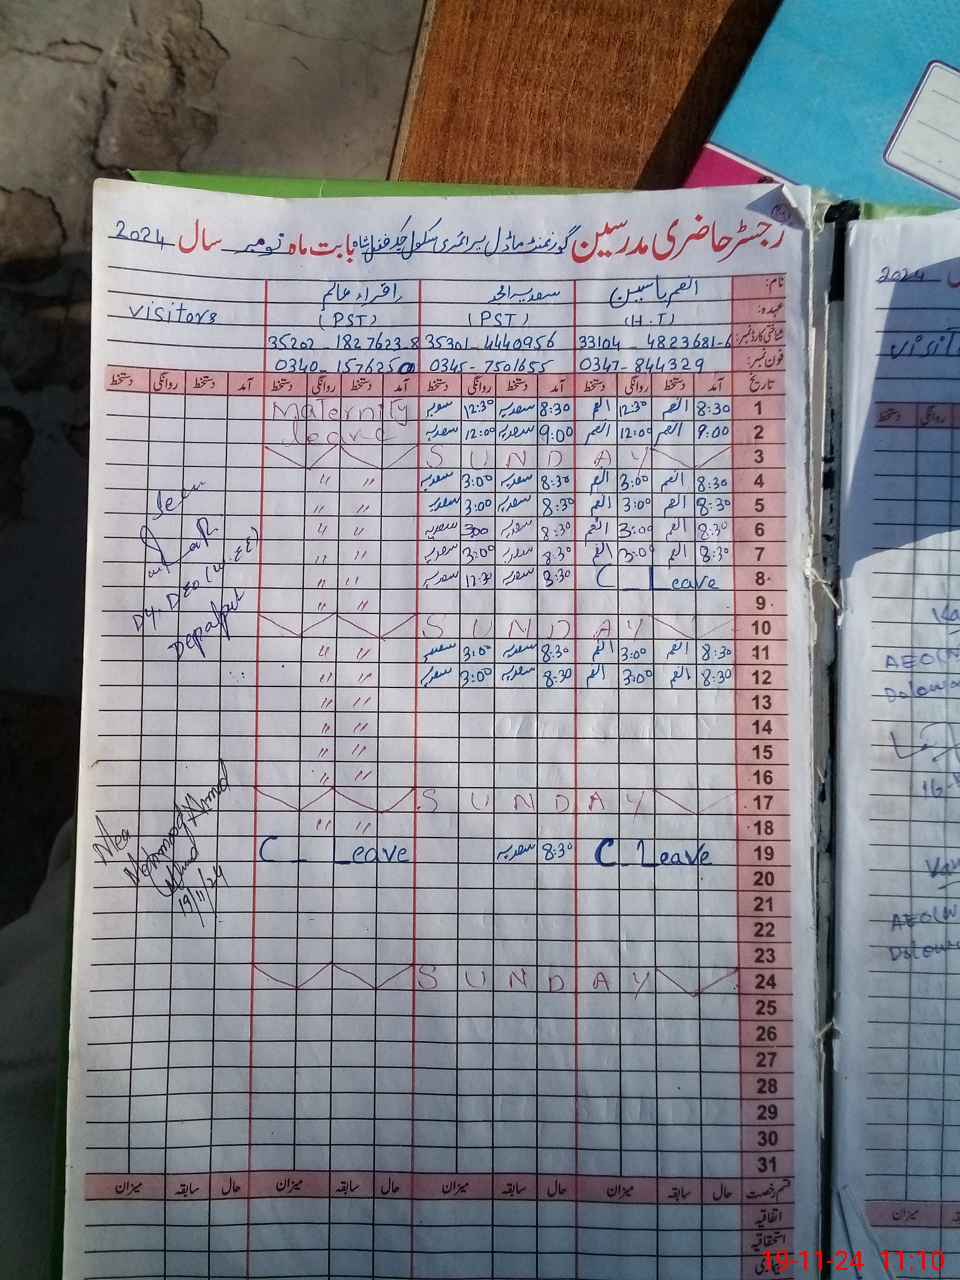 رجسٹر حاضری مدرسین گورنمنٹ ماڈل پرائمری سکول بابت ماہ نومبر سال 2024
نام: انعم یاسین سعدیہ اقراء عالم
عہدہ: (H.T) (PST) (PST) visitors
شناختی کارڈ نمبر: 33104-4823681-6 35301-4440956 35202-1827623-8
فون نمبر: 0347-844329 0345-7501655 0340-1576250
تاریخ آمد دستخط روانگی دستخط آمد دستخط روانگی دستخط آمد دستخط روانگی دستخط آمد دستخط روانگی دستخط
1 8:30 انعم 12:30 انعم 8:30 سعدیہ 12:30 سعدیہ Maternity
2 9:00 انعم 12:00 انعم 9:00 سعدیہ 12:00 سعدیہ leave
3 SUNDAY
4 8:30 انعم 3:00 انعم 8:30 سعدیہ 3:00 سعدیہ " "
5 8:30 انعم 3:00 انعم 8:30 سعدیہ 3:00 سعدیہ " "
6 8:30 انعم 3:00 انعم 8:30 سعدیہ 300 سعدیہ " "
7 8:30 انعم 3:00 انعم 8:30 سعدیہ 3:00 سعدیہ " "
8 C_Leave 8:30 سعدیہ 12:30 سعدیہ " "
9 " "
10 SUNDAY
11 8:30 انعم 3:00 انعم 8:30 سعدیہ 3:00 سعدیہ " "
12 8:30 انعم 3:00 انعم 8:30 سعدیہ 3:00 سعدیہ " "
13 " "
14 " "
15 " "
16 " "
17 SUNDAY
18 " "
19 C_Leave 8:30 سعدیہ C_Leave
20
21
22
23
24 SUNDAY
25
26
27
28
29
30
31
قسم رخصت حال سابقہ میزان حال سابقہ میزان حال سابقہ میزان حال سابقہ میزان
اتفاقیہ
استحقاقیہ
Seen
Dy. DEO (W.EE)
Depalpur
Mehmood Ahmad
19/11/24
2024
AEO(
AEO(W
میزان
19-11-24 11:10